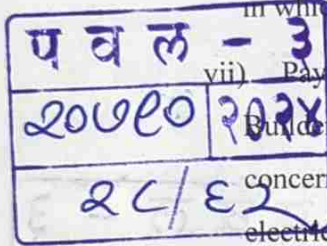 in whic
प व ल - ३
vii) Pay
२०७९० २०२४ Builde
२८/६२ concer
electric